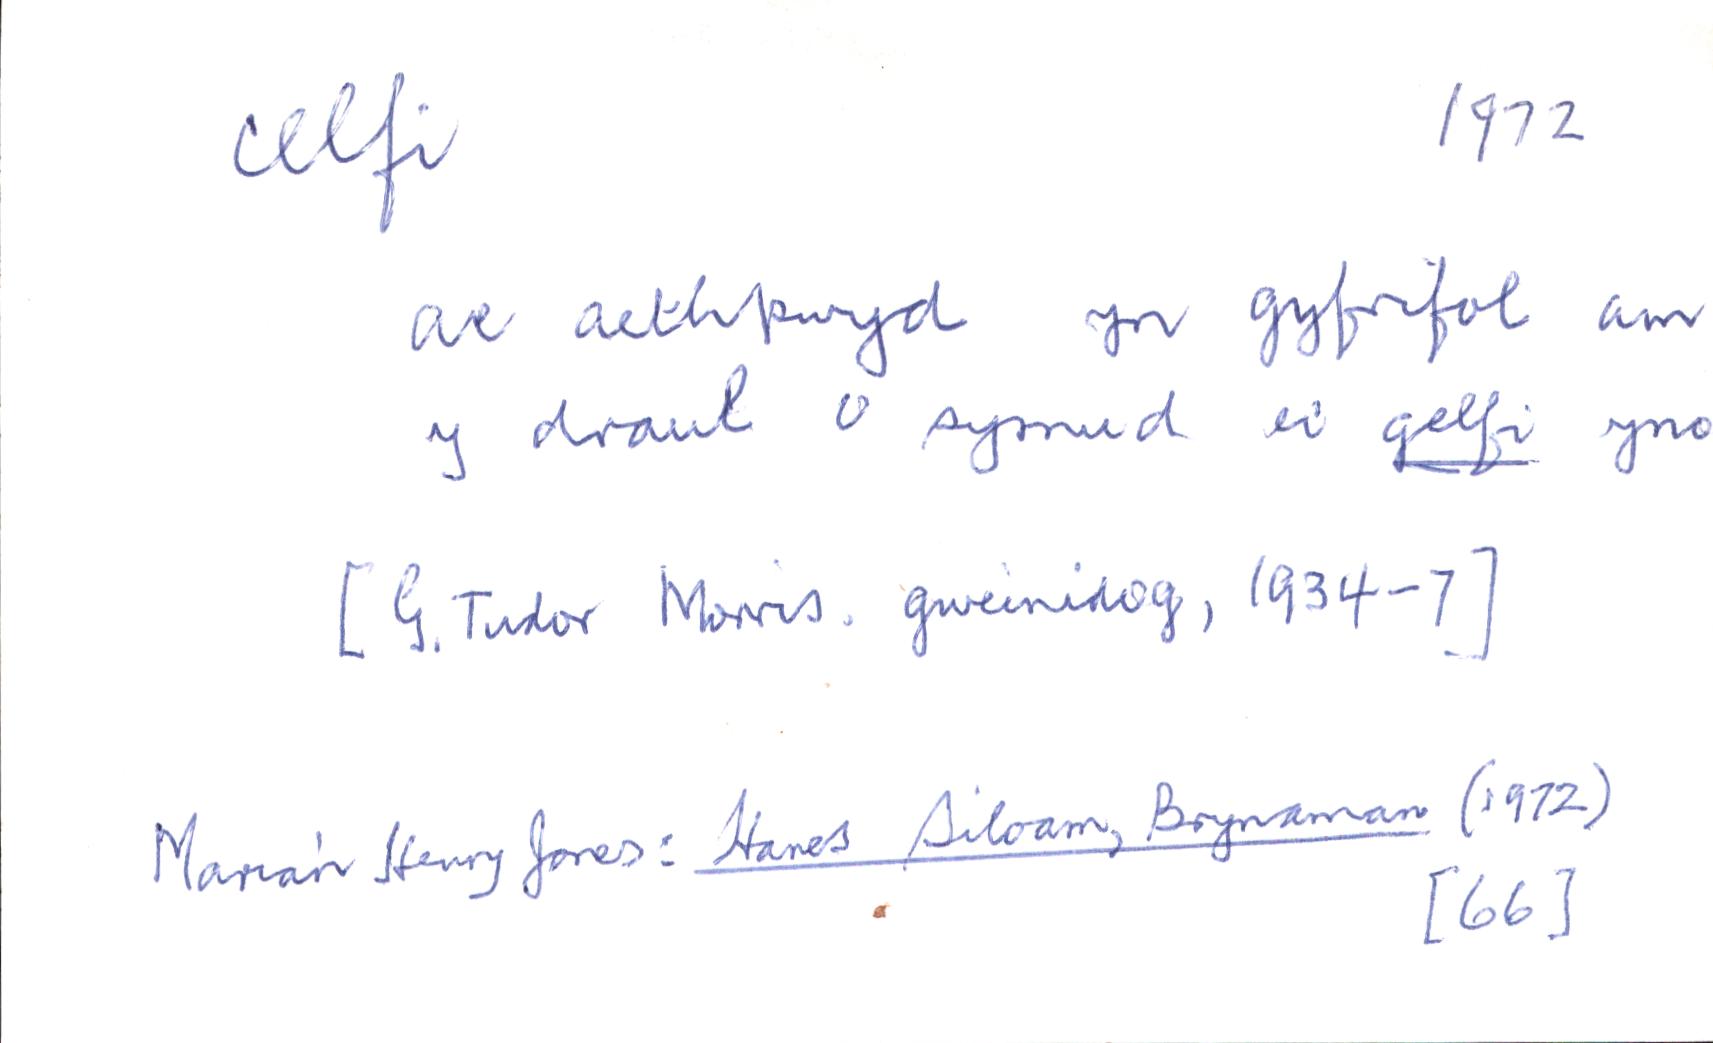 celfi 1972
ac aethpwyd yn gyfrifol am
y draul o symud ei gelfi yno
[G. Tudor Morris. gweinidog, 1934-7]
Marian Henry Jones: Hanes Siloam, Brynaman (1972)
[66]